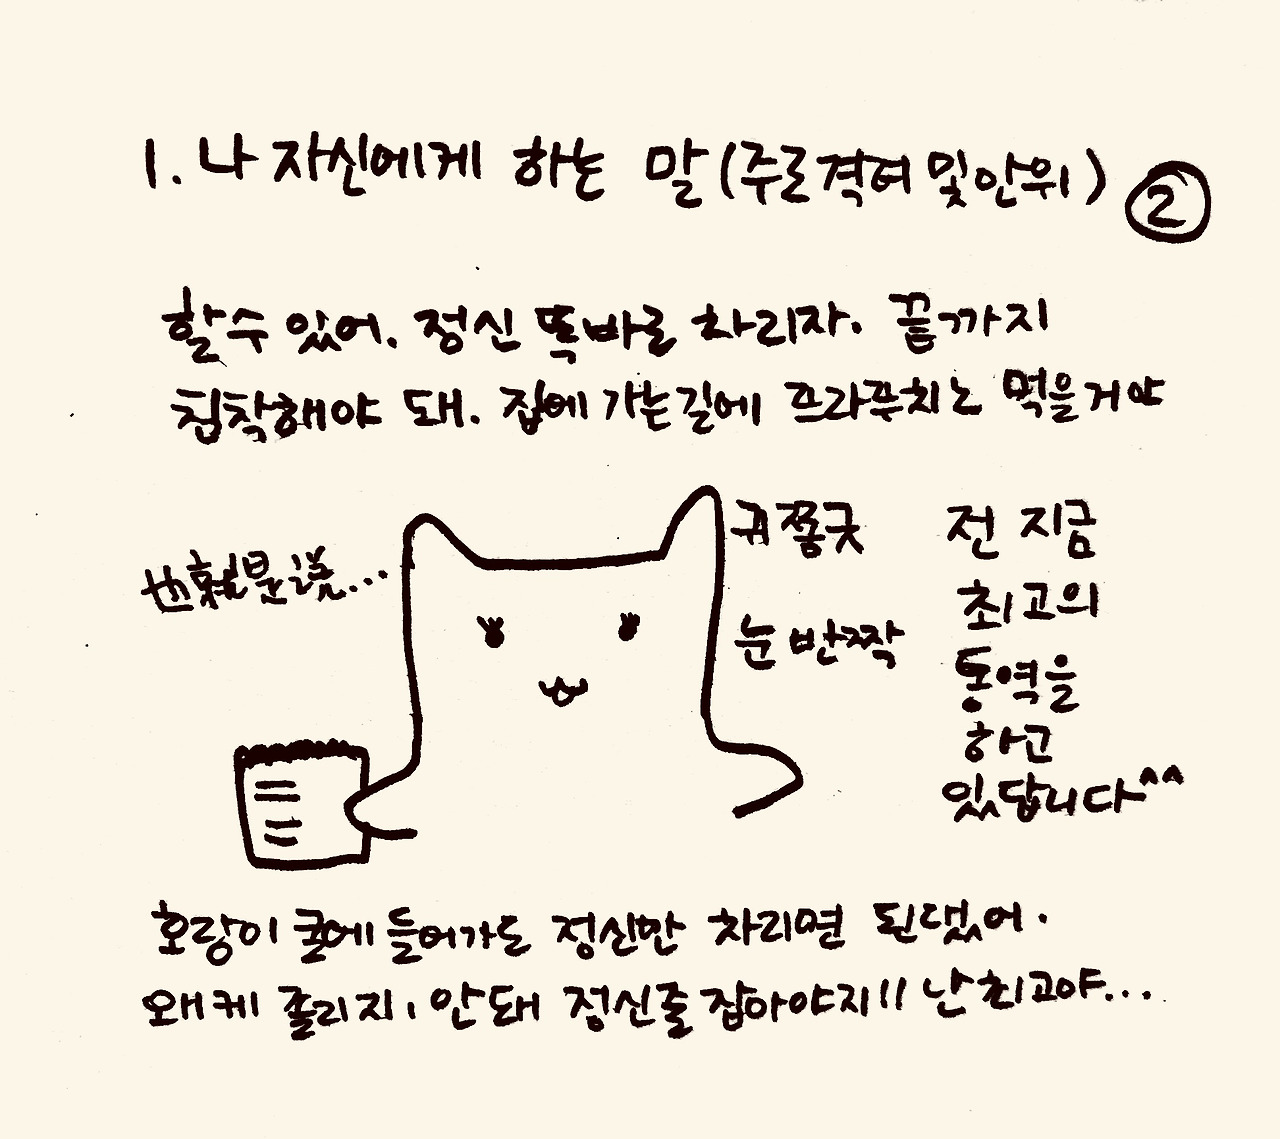 1. 나 자신에게 하는 말 (주로 격려 및 안위) ②
할수 있어. 정신 똑바로 차리자. 끝까지
침착해야 돼. 집에 가는길에 프라푸치노 먹을거야
也就是说...
귀쫑긋
눈 반짝
전 지금
최고의
통역을
하고
있답니다^^
호랑이 굴에 들어가도 정신만 차리면 된댔어.
왜케 졸리지, 안돼 정신줄 잡아야지!! 난 최고야...